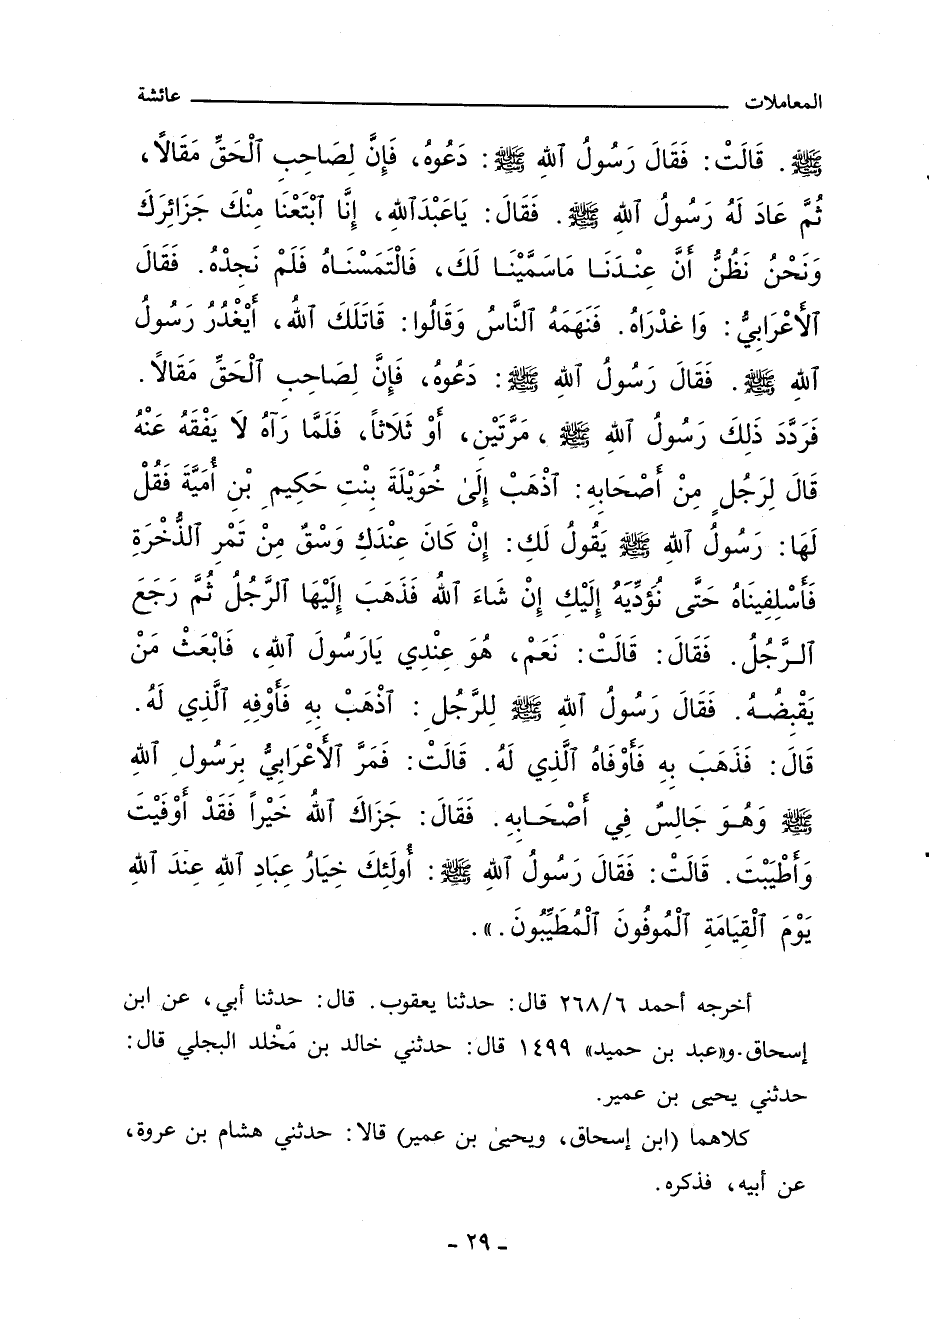 المعاملات ـــــــــ عائشة
ﷺ. قَالَتْ: فَقَالَ رَسُولُ ٱللهِ ﷺ: دَعُوهُ، فَإِنَّ لِصَاحِبِ ٱلْحَقِّ مَقَالاً،
ثُمَّ عَادَ لَهُ رَسُولُ ٱللهِ ﷺ. فَقَالَ: يَاعَبْدَٱللهِ، إِنَّا ٱبْتَعْنَا مِنْكَ جَزَائِرَكَ
وَنَحْنُ نَظُنُّ أَنَّ عِنْدَنَا مَاسَمَّيْنَا لَكَ، فَالْتَمَسْنَاهُ فَلَمْ نَجِدْهُ. فَقَالَ
ٱلْأَعْرَابِيُّ: وَاغَدْرَاهُ. فَنَهَمَهُ ٱلنَّاسُ وَقَالُوا: قَاتَلَكَ ٱللهُ، أَيَغْدُرُ رَسُولُ
ٱللهِ ﷺ. فَقَالَ رَسُولُ ٱللهِ ﷺ: دَعُوهُ، فَإِنَّ لِصَاحِبِ ٱلْحَقِّ مَقَالاً.
فَرَدَّدَ ذَلِكَ رَسُولُ ٱللهِ ﷺ، مَرَّتَيْنِ، أَوْ ثَلَاثاً، فَلَمَّا رَآهُ لَا يَفْقَهُ عَنْهُ
قَالَ لِرَجُلٍ مِنْ أَصْحَابِهِ: ٱذْهَبْ إِلَىٰ خُوَيْلَةَ بِنْتِ حَكِيمِ بْنِ أُمَيَّةَ فَقُلْ
لَهَا: رَسُولُ ٱللهِ ﷺ يَقُولُ لَكِ: إِنْ كَانَ عِنْدَكِ وَسْقٌ مِنْ تَمْرِ ٱلذُّخْرَةِ
فَأَسْلِفِينَاهُ حَتَّى نُؤَدِّيَهُ إِلَيْكِ إِنْ شَاءَ ٱللهُ فَذَهَبَ إِلَيْهَا ٱلرَّجُلُ ثُمَّ رَجَعَ
ٱلرَّجُلُ. فَقَالَ: قَالَتْ: نَعَمْ، هُوَ عِنْدِي يَارَسُولَ ٱللهِ، فَابْعَثْ مَنْ
يَقْبِضُهُ. فَقَالَ رَسُولُ ٱللهِ ﷺ لِلرَّجُلِ: ٱذْهَبْ بِهِ فَأَوْفِهِ ٱلَّذِي لَهُ.
قَالَ: فَذَهَبَ بِهِ فَأَوْفَاهُ ٱلَّذِي لَهُ. قَالَتْ: فَمَرَّ ٱلْأَعْرَابِيُّ بِرَسُولِ ٱللهِ
ﷺ وَهُوَ جَالِسٌ فِي أَصْحَابِهِ. فَقَالَ: جَزَاكَ ٱللهُ خَيْراً فَقَدْ أَوْفَيْتَ
وَأَطْيَبْتَ. قَالَتْ: فَقَالَ رَسُولُ ٱللهِ ﷺ: أُولَئِكَ خِيَارُ عِبَادِ ٱللهِ عِنْدَ ٱللهِ
يَوْمَ ٱلْقِيَامَةِ ٱلْمُوفُونَ ٱلْمُطَيِّبُونَ.».
أخرجه أحمد ٢٦٨/٦ قال: حدثنا يعقوب. قال: حدثنا أبي، عن ابن
إسحاق. و«عبد بن حميد» ١٤٩٩ قال: حدثني خالد بن مَخْلد البجلي قال:
حدثني يحيى بن عمير.
كلاهما (ابن إسحاق، ويحيىٰ بن عمير) قالا: حدثني هشام بن عروة،
عن أبيه، فذكره.
- ٢٩ -